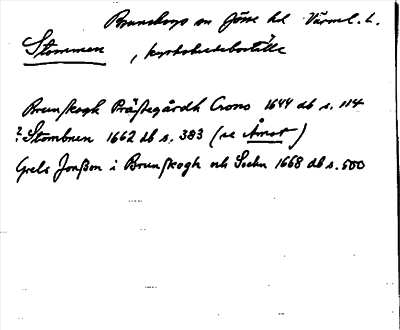 Brunskogs sn Jösse hd Värml. l.
Stommen, kyrkoherdeboställe
Brunskogh Prästegårdh Crono 1644 db s. 114
? Stombnen 1662 db s. 383 (se Åmot)
Grels Jonßon i Brunskogh och Sochn 1668 db s. 500